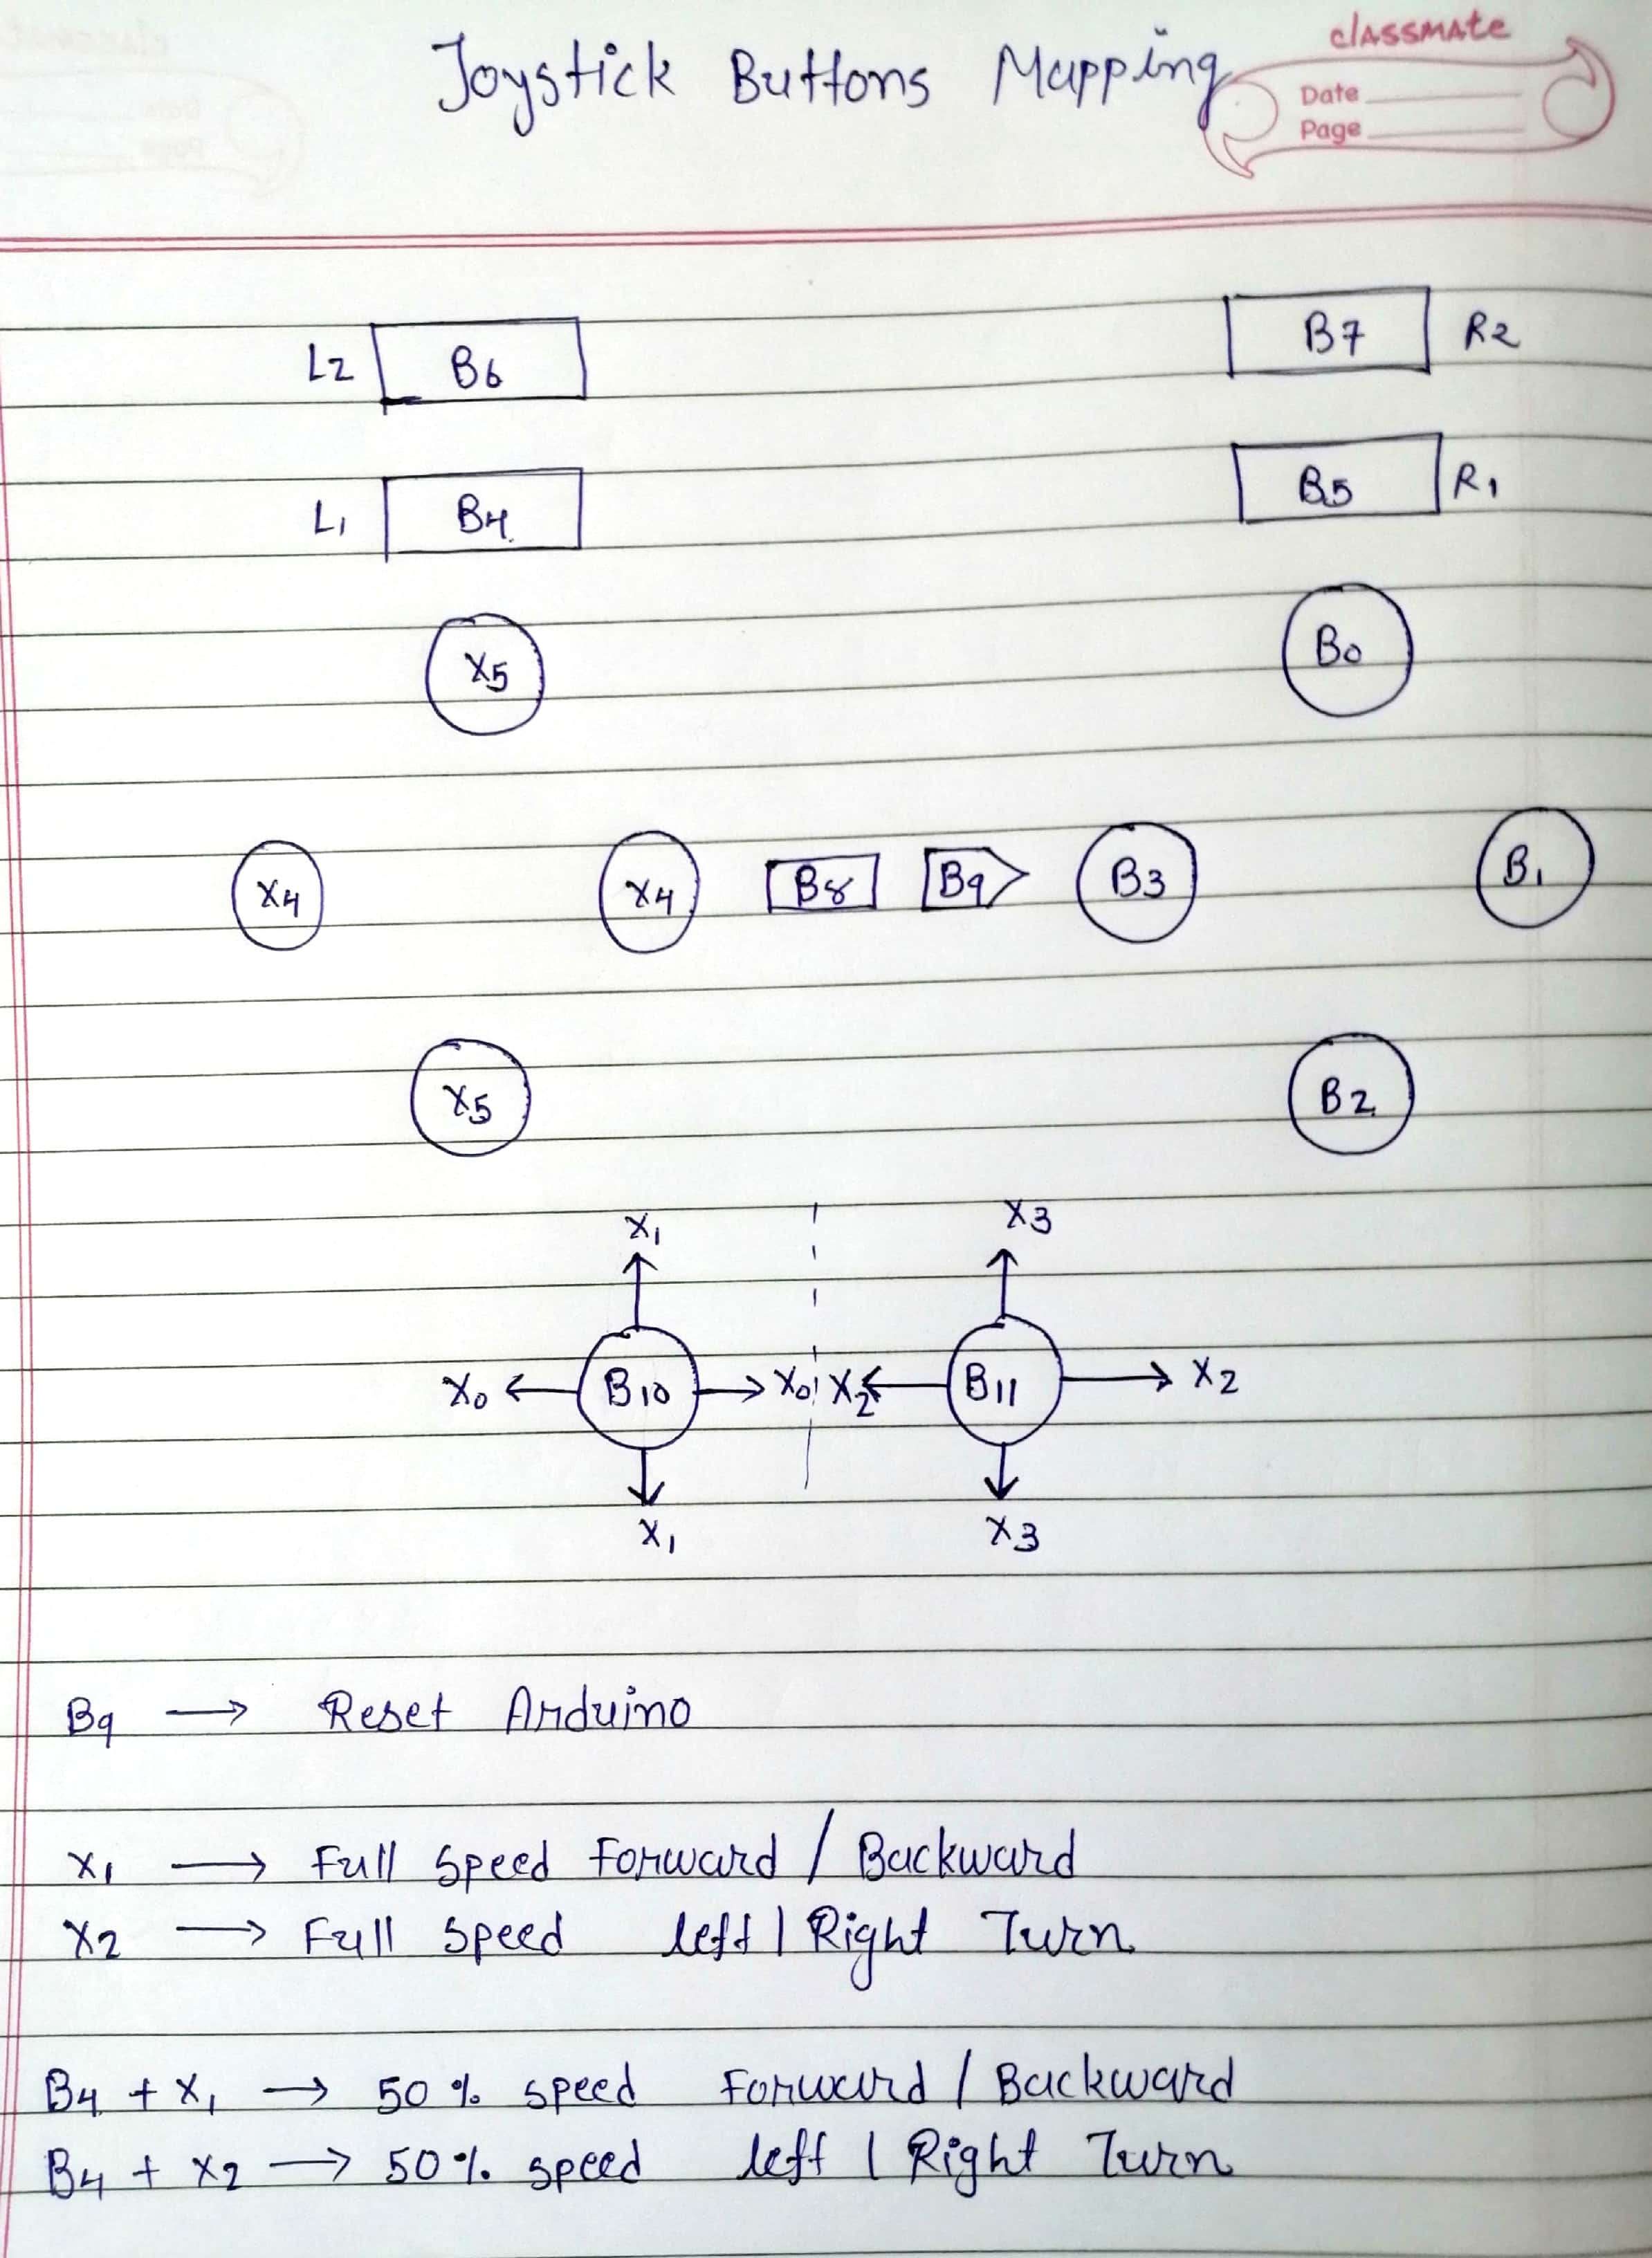 Joystick Buttons Mapping
classmate
Date
Page
L2 B6 B7 R2
L1 B4 B5 R1
X5 B0
X4 X4 B8 B9 B3 B1
X5 B2
X1 X3
X0 B10 X0 X2 B11 X2
X1 X3
B9 → Reset Arduino
X1 → Full Speed Forward / Backward
X2 → Full Speed left | Right Turn
B4 + X1 → 50% speed Forward / Backward
B4 + X2 → 50% speed left | Right Turn